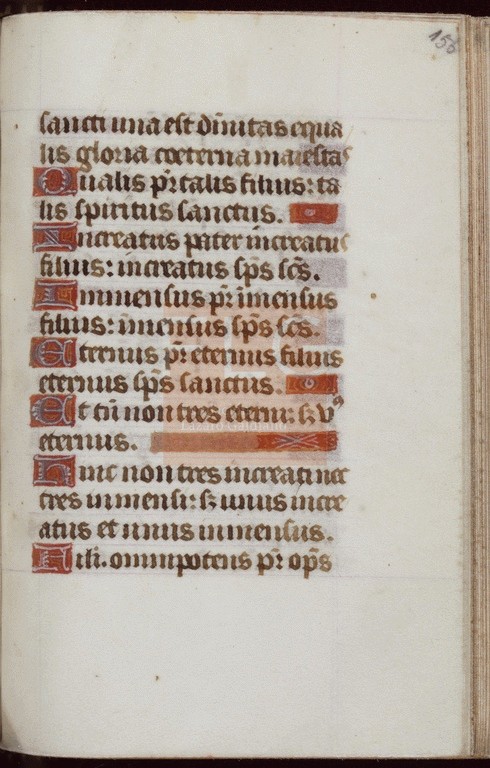 156
sancti una est diuinitas equa
lis gloria coeterna maiestas
Qualis pr̄ talis filius: ta
lis spiritus sanctus.
Increatus pater increatus
filius: increatus sp̄s sc̄s.
Immensus pr̄ imensus
filius: īmensus sp̄s sc̄s.
Eternus pr̄ eternus filius
eternus sp̄s sanctus.
Et tn̄ non tres eterni: sꝫ vꝰ
eternus.
non tres increati nec
tres inmensi: sꝫ unus incre
atus et unus inmensus.
omnipotens pr̄ op̄s